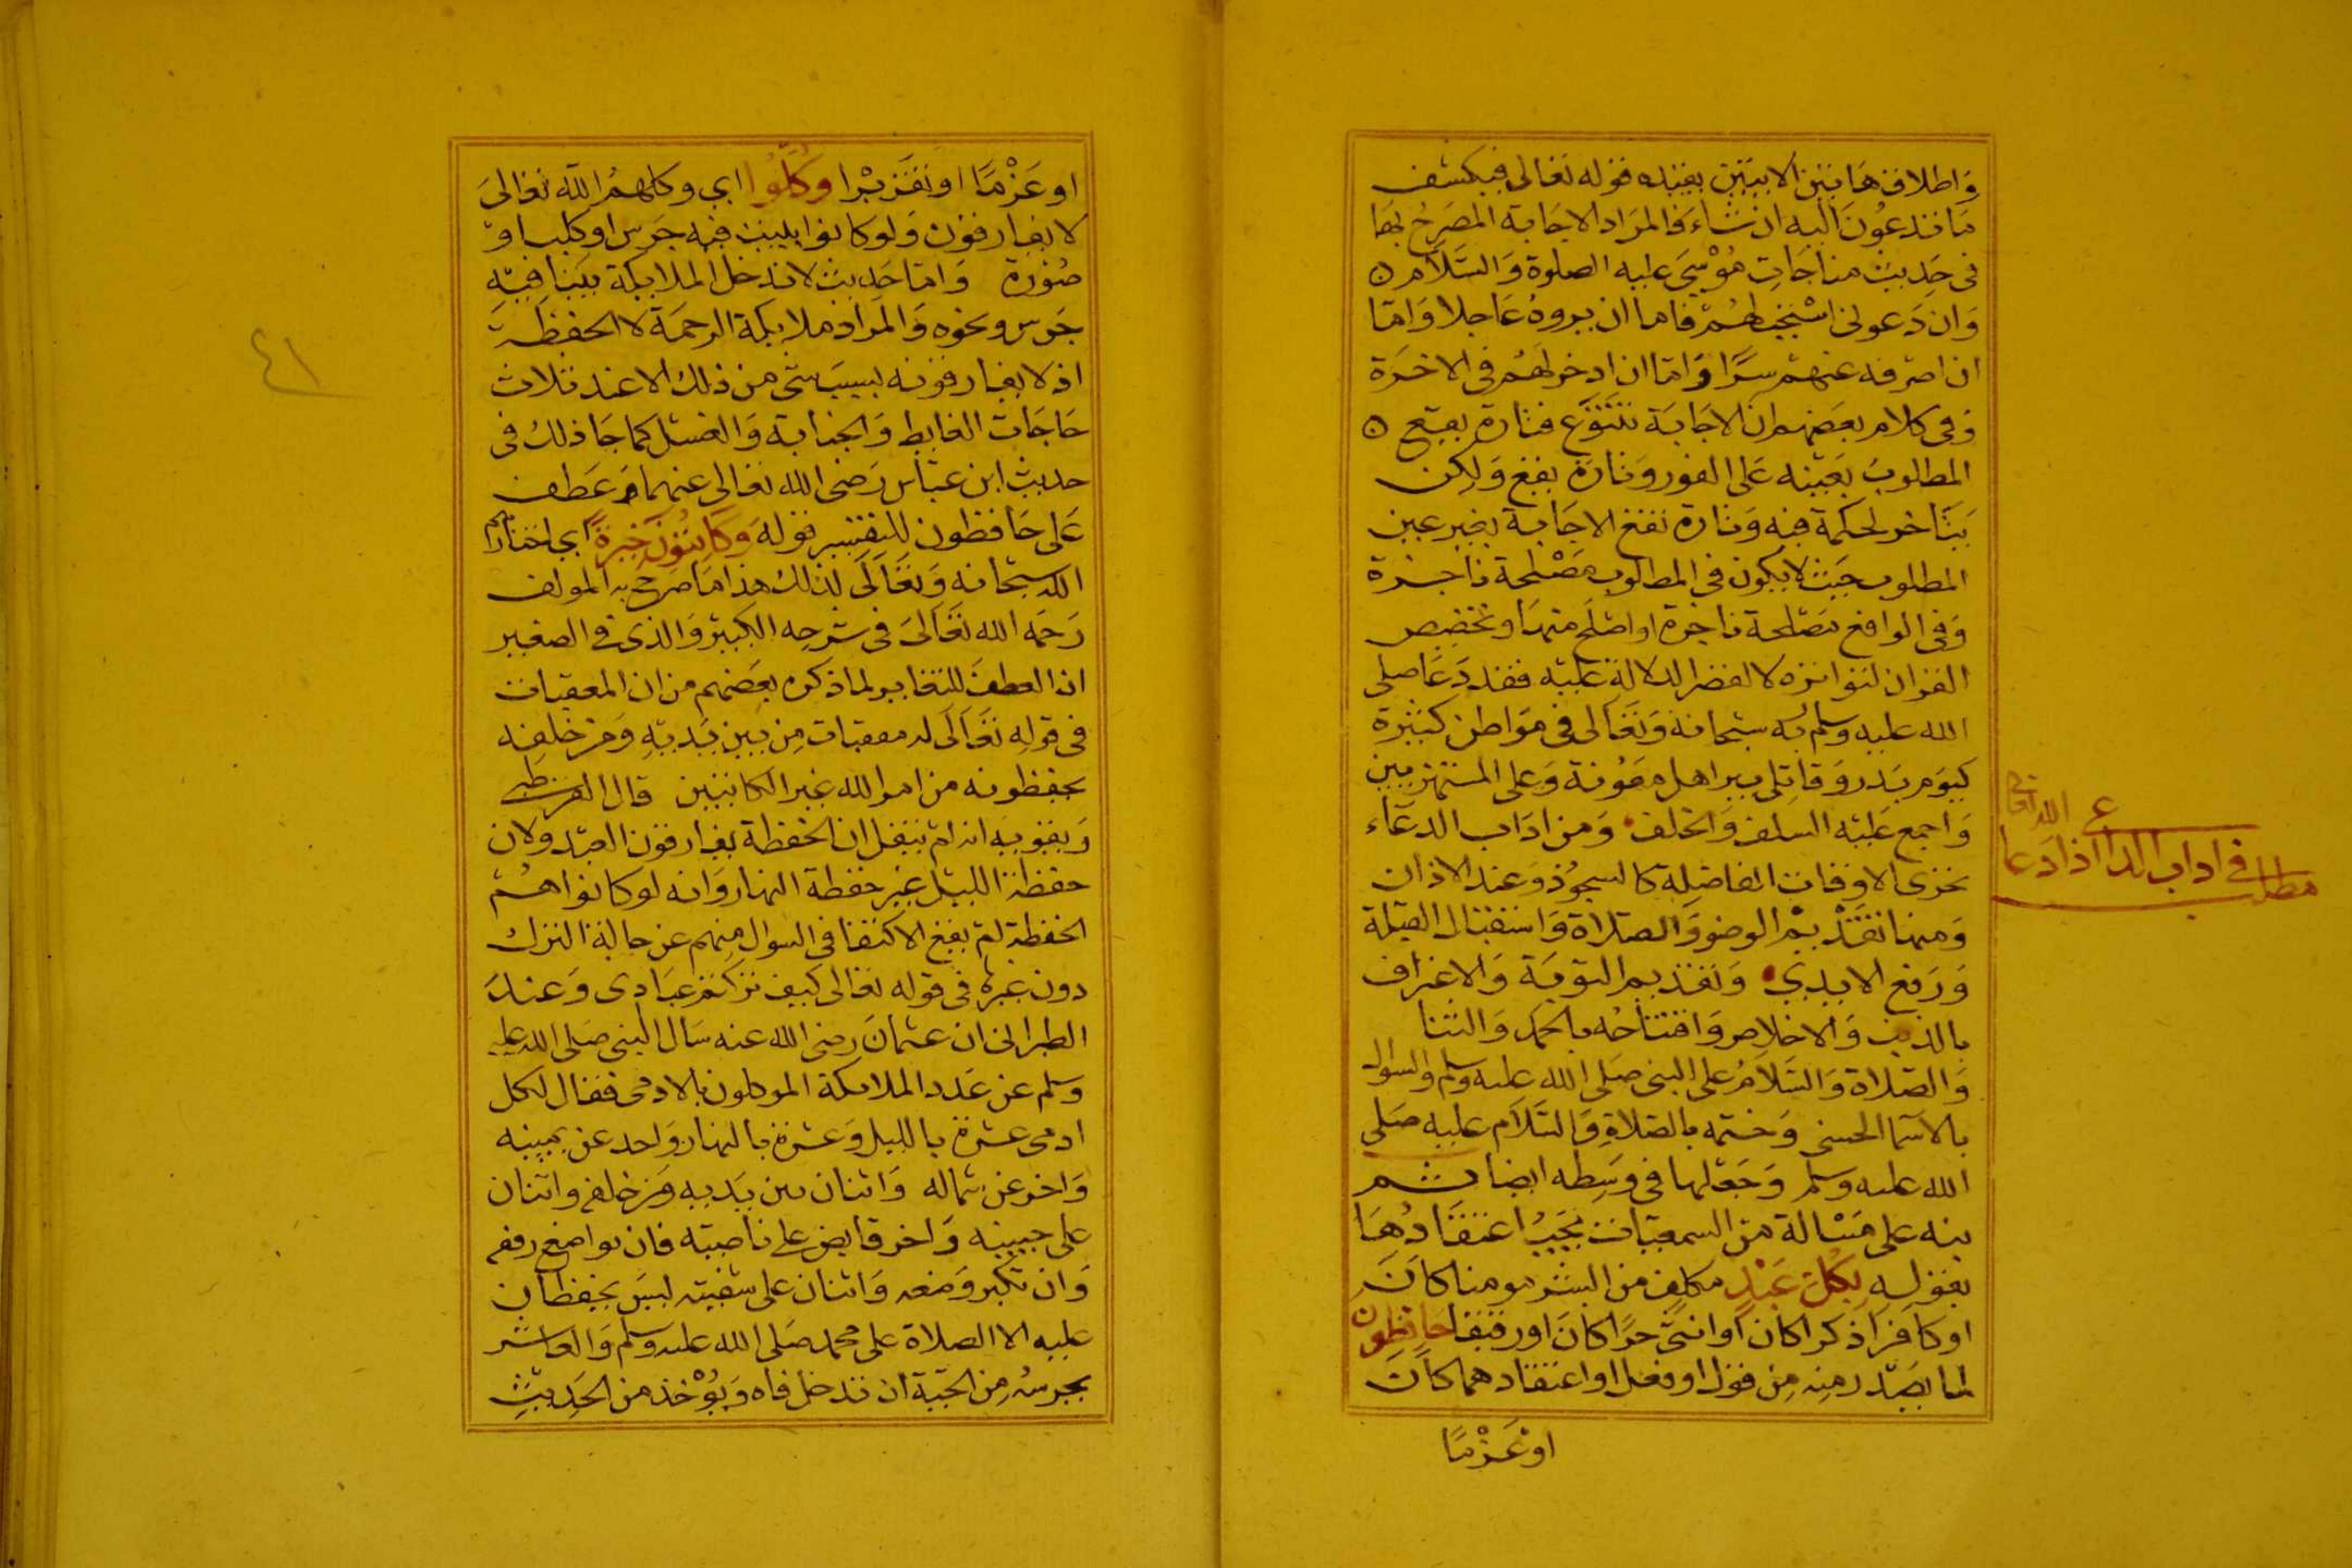 وَاطلاق هَاتين الايتين يقيّده قوله تعَالى فيكشف
مَا تدعُونَ اليه ان شاءَ فالمرَاد الاجَابة المصَرحُ بهَا
فى حَديث مناجَات مُوْسَى عليه الصلوة وَالسَّلاَم ۵
وَان دَعونى اسْتجَبْ لهُمْ فاما ان يروهُ عَاجلا وَامّا
ان اصرفه عنهمْ سوًّا وَامّا ان ادخرلهُم فى الاخرَة
وَفى كلام بعَضهم ان الاجَابَة تتنَوَّع فتارة يقع ۵
المطلوبُ بعَينه عَلى الفور وَتارَة يقع وَلكن
يتَاخر لحكمة فيه وَتارة تقع الاجَابة بغير عين
المطلوب حيَث لا يكون فى المطلوب مَصْلحة ناجزة
وَفى الواقع مَصْلحة ناجزة اواصْلَح منهَا وتخصيص
القران لتواتره لا لقصر الدلالة عليْه فقد دَعَا صلى
الله عليه وسلم له سبْحانه وَتعَالى فى موَاطن كثيْرة
كيَوم بَدر وَقاتلى بير اهل معَونة وَعلى المستهزيين
وَاجمع عَليْه السلف وَالخلف وَمن ادَاب الدعَاء
تحرى الاوقات الفاضلِة كالسجوُد وَعند الاذان
وَمنها تقدْيم الوضو وَالصلاة وَاستقبال القبلة
وَرَفع الايدي وَتقديم التوبَة وَالاعتراف
بالذنب وَالاخلاص وَافتتاحُه بالحمدِ وَالثنا
وَالصّلاة وَالسَّلاَمُ على النبى صَلى الله عليه وسلم والسوال
بالاسما الحسنى وَختمه بالصلاةِ وَالسَّلاَم عليه صَلى
الله عليه وسلم وَجَعْلها فى وسَطه ايضا ثم
نبه على مَسْالة من السمعيّات يجَبُ اعتقَادُهَا
بقوله بكل عَبْدٍ مكلف من البشر مومنا كانَ
اوكافرًا ذكرا كان اوانثَى حرًّا كانَ اورقيقا حَافظِون
لما يصَدر منِه مِن قول اوفعل اواعتقاد هما كانَ
اوعَزْمًا
مطلب فى اداب الداع اذا دعا
الله تعالى
اوعَزْمًا اوتقَريْرا وُكِّلُوا اي وكلهمُ الله تعَالىَ
لا يفارقون وَلوكانوا ببيت فيه جَرس اوكلب اوْ
صُوْرة وَامّا حَديث لا تدخل الملايكة بيتا فيْهِ
جَرس ونحوه وَالمرَاد ملايكة الرحمَة لا الحفظة
اذ لا يفارقونه بسبَب شى من ذلك الا عند ثلاث
حَاجَات الغايط وَالجنابة وَالغسْل كما جَا ذلك فى
حديث ابن عبّاس رَضى الله تعَالى عنهما وَعَطف
عَلى حَافظون للتفسير قوله وَكاتِبُوْنَ خِيَرَةً اي اختارهم
الله سبْحانه وَتعَالَى لذلك هذا مَا صَرح به المولف
رَحمَه الله تعَالىَ فى شرحِه الكبيْر وَالذى فى الصغير
ان العطفَ للتغاير لما ذكره بعَضهم من ان المعقبات
فى قوله تعَالَى له معقبات مِن بيَن يَديْهِ وَمن خلفه
يحفظونه من امرالله غير الكاتبين قال القرطبى
وَيقويه انه لم ينقل ان الحفظة يفارقون العبْد ولان
حفظة الليْل غير حفظة النهار وَانه لو كانوا هُمْ
الحفظة لم يقع الاكتفا فى السوال منهم عن حالة الترك
دون غيره فى قوله تعَالى كيف تركتم عبَادى وَعندَ
الطبرانى ان عثمانَ رضى الله عنه سَال النبى صَلى الله عليه
وسلم عن عَدد الملايكة الموكلون بالادمى فقال لكل
ادمى عشرة بالليل وَعشرة بالنهار وَاحد عن يمينه
وَاخر عن شماله وَاثنان بين يَديه وَمن خلفه واثنان
على جبينه وَاخر قابض على ناصيته فان تواضع رفعه
وَان تكبر وَضعه وَاثنان على شفتيه ليسَ يحفظان
عليه الا الصلاة على محمد صَلى الله عليه وسلم وَالعاشر
يحرسُه مِن الحيّة ان تدخل فاه وَيُوْخذ من الحَديثِ
٤١